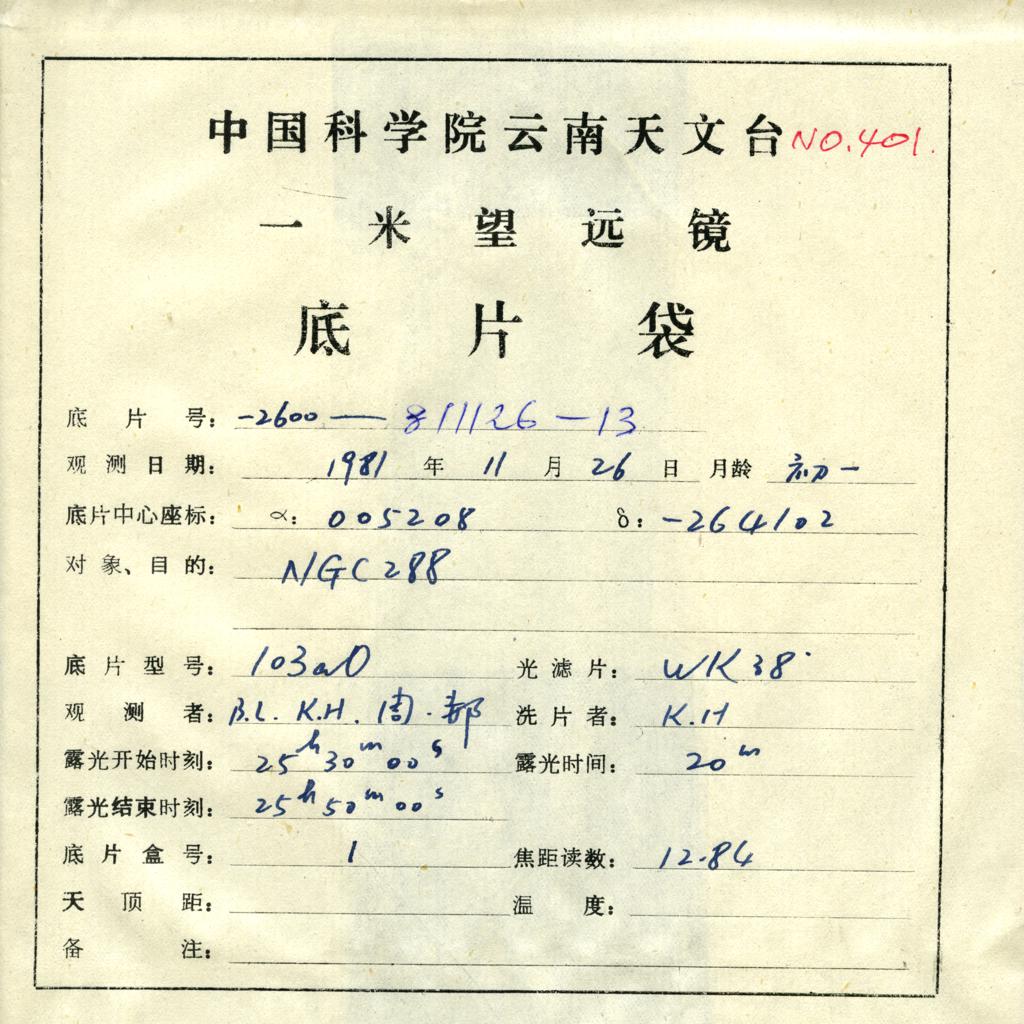 中国科学院云南天文台 NO.401.
一米望远镜
底片袋
底片号: -2600 — 811126-13
观测日期: 1981年11月26日 月龄 初一
底片中心座标: α: 005208 δ: -264102
对象、目的: NGC288
底片型号: 103aO 光滤片: WK38
观测者: B.L. K.H. 周·郝 洗片者: K.H
露光开始时刻: 25h30m00s 露光时间: 20m
露光结束时刻: 25h50m00s
底片盒号: 1 焦距读数: 12.84
天顶距: 温度:
备注: